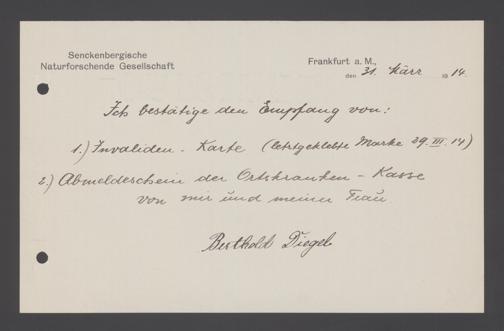 Senckenbergische
Naturforschende Gesellschaft
Frankfurt a. M.,
den 31. März 1914.
Ich bestätige den Empfang von:
1.) Invaliden - Karte (letztgeklebte Marke 29. III. 14)
2.) Abmeldeschein der Ortskranken - Kasse
von mir und meiner Frau
Berthold Diegel